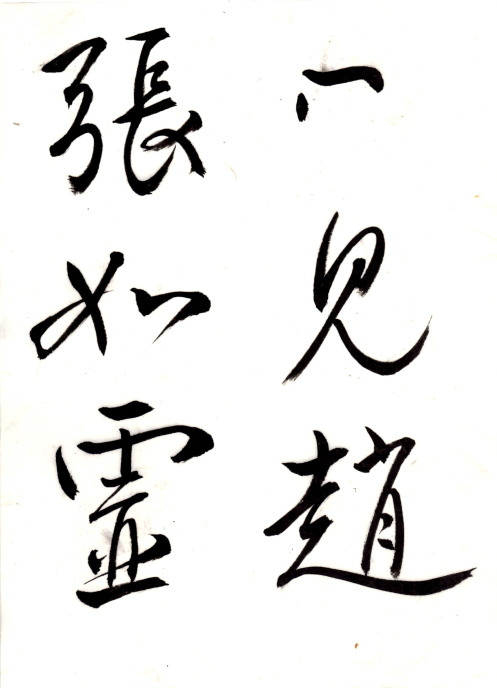 見趙
張如靈